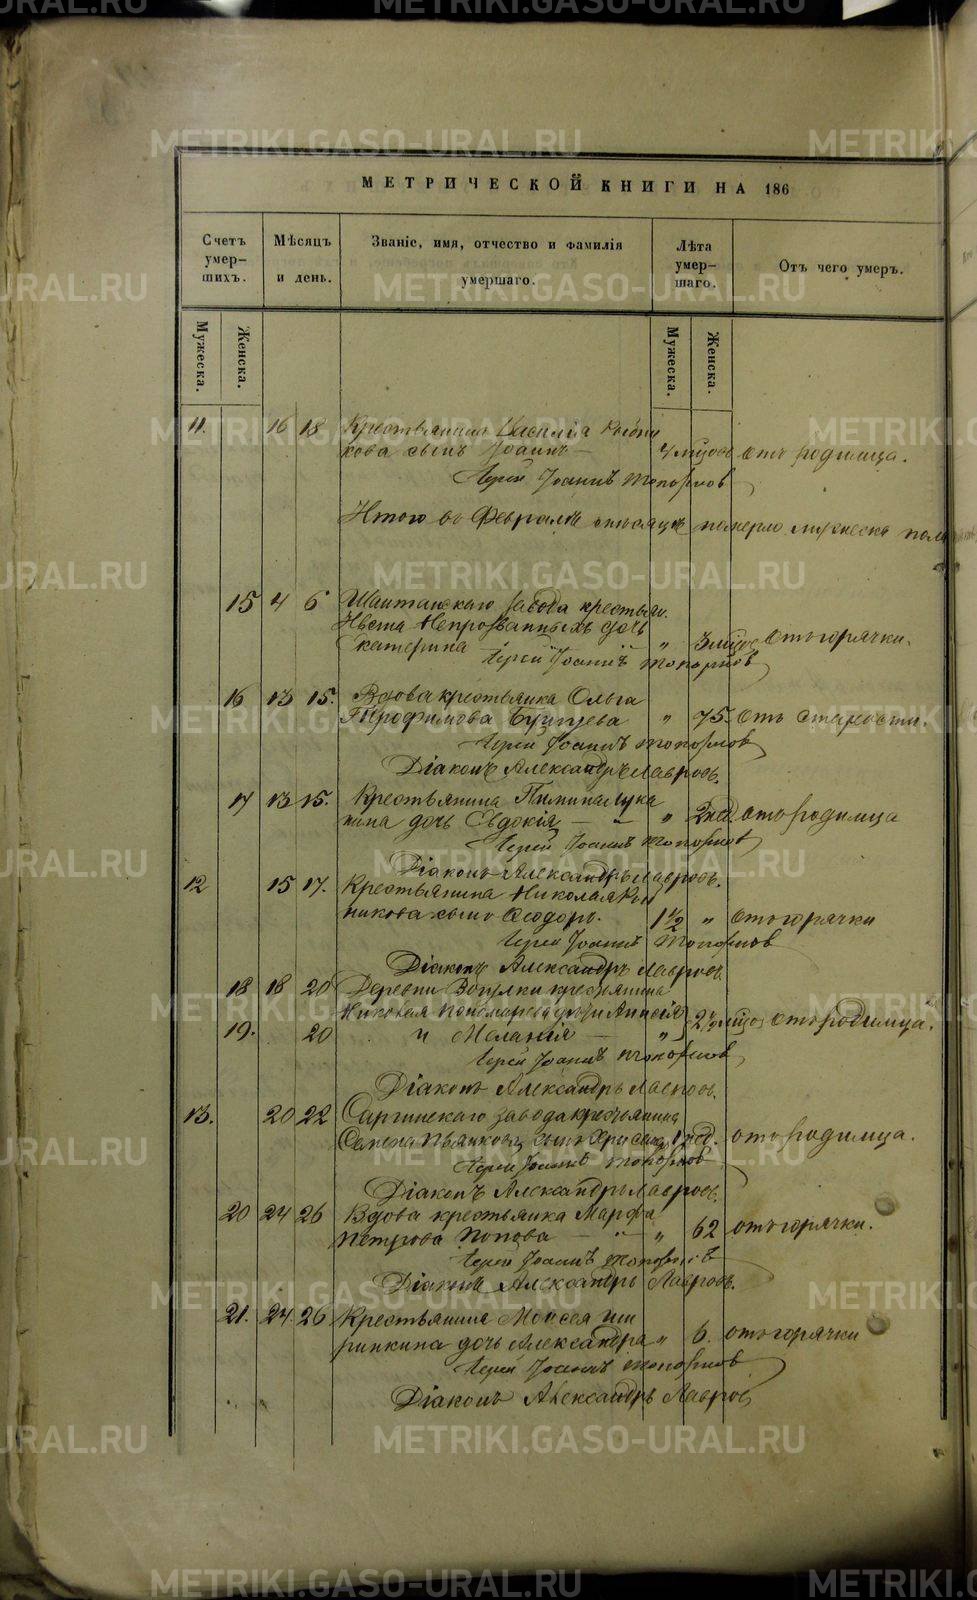 METRIKI.GASO-URAL.RU
МЕТРИЧЕСКОЙ КНИГИ НА 186
Счетъ умер-
шихъ.
Мѣсяцъ
и день.
Званіе, имя, отчество и фамилія
умершаго.
Лѣта
умер-
шаго.
Отъ чего умеръ.
Мужеска.
Женска.
Мужеска.
Женска.
11. 16 18 Крестьянина Василія
кова сынъ Іоаннъ — 4 отъ родимца.
Іерей Іоаннъ Топорковъ
Итого въ Февралѣ мѣсяцѣ померло мужеска пола
15 4 6 Шайтанскаго завода крестьян.
Непрозванныхъ дочь
Екатерина " 3 отъ горячки.
Іерей Іоаннъ Топорковъ
16 13 15. Вдова крестьянка Ольга
Трофимова " 75. отъ старости.
Іерей Іоаннъ Топорковъ
Діаконъ Александръ Лавровъ.
17 13 15. Крестьянина Пимина Лука
нина дочь Евдокія — " 2 нед. отъ родимца
Іерей Іоаннъ Топорковъ
Діаконъ Александръ Лавровъ.
12 15 17. Крестьянина Николая
никова сынъ Ѳеодоръ. 1 1/2 " отъ горячки
Іерей Іоаннъ Топорковъ
Діаконъ Александръ Лавровъ
18 18 20 Деревни крестьянина
Николая Пономарева дочери Анисія
19. 20 и Меланія — " 2 1/2 отъ родимца.
Іерей Іоаннъ Топорковъ
Діаконъ Александръ Лавровъ.
13. 20 22 Саргинскаго завода крестьянина
Семена сынъ 1 нед. отъ родимца.
Іерей Іоаннъ Топорковъ
Діаконъ Александръ Лавровъ.
20 24 26 Вдова крестьянка Марфа
Петрова Попова — " 62 отъ горячки.
Іерей Іоаннъ Топорковъ
Діаконъ Александръ Лавровъ.
21. 24. 26 Крестьянина Моисея Ши
ринкина дочь Александра " 6. отъ горячки
Іерей Іоаннъ Топорковъ
Діаконъ Александръ Лавровъ